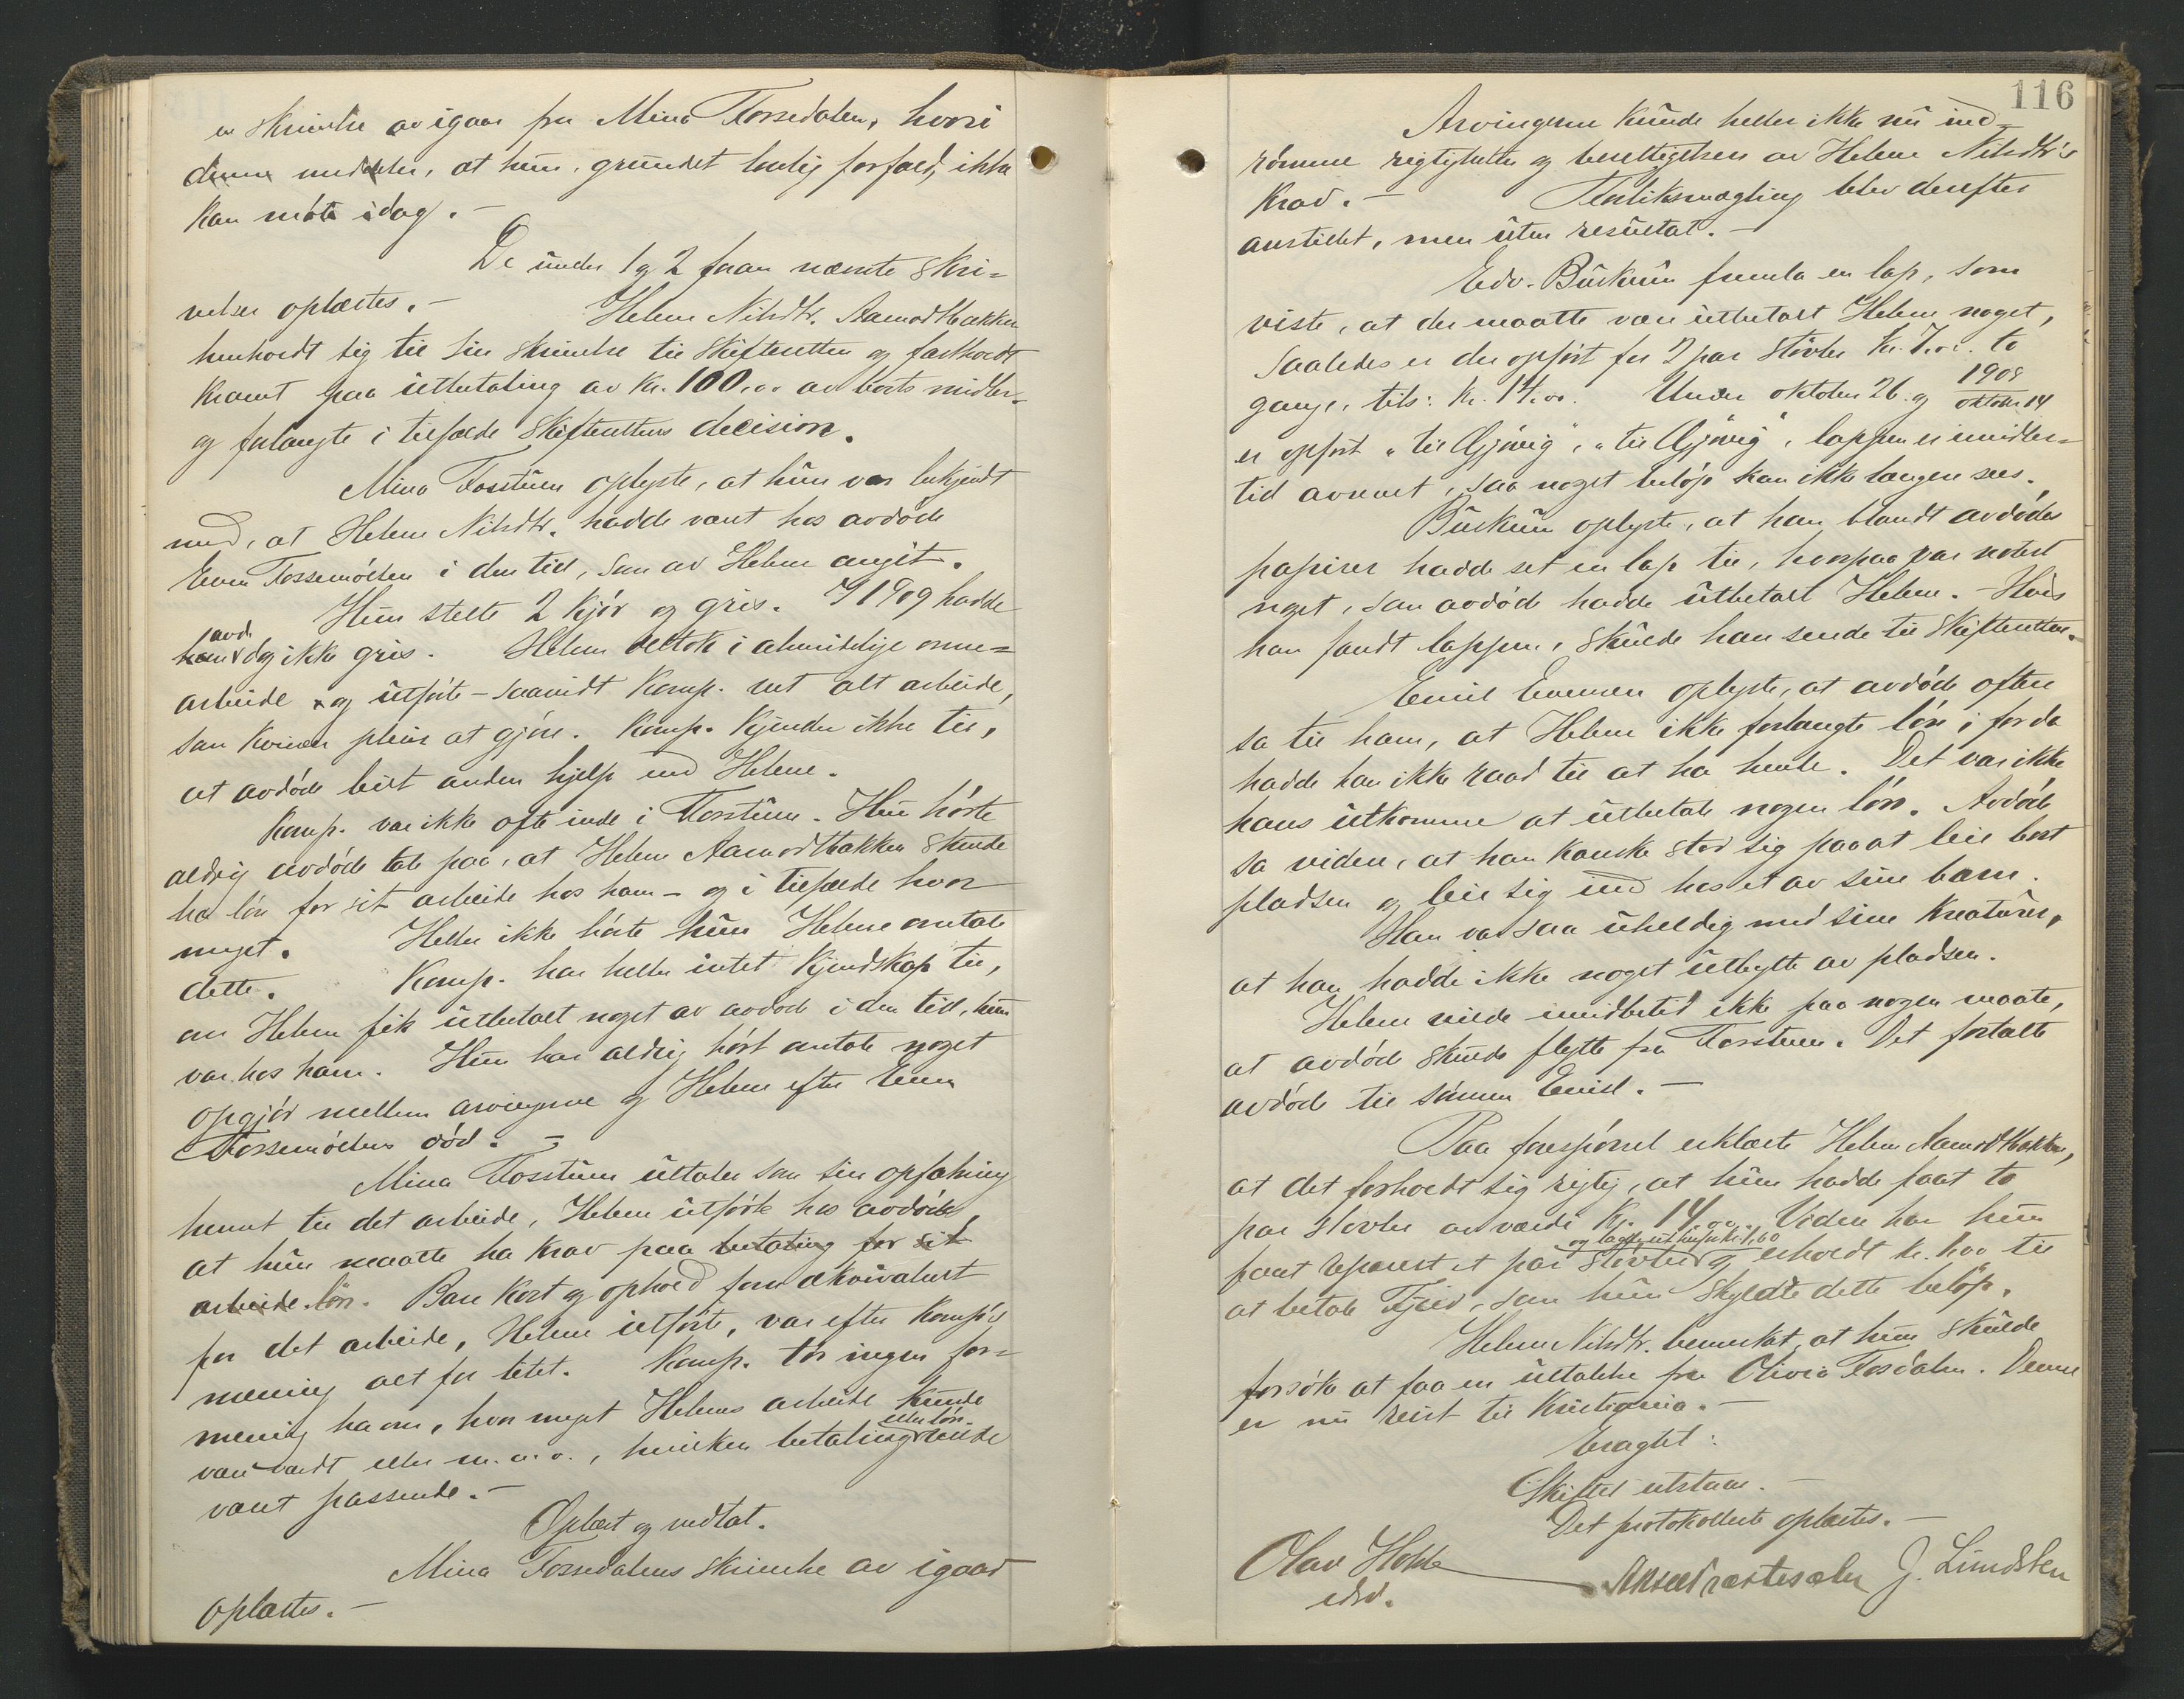 en skrivelse av igaar fra Mina Fossedalen, hvori
denne meddeler, at hun, grundet lovlig forfald, ikke
kan möte idag. -
De under 1 og 2 foran nævnte skri=
velser oplæstes. - Helene Nilsdtr. Aamodtbakken
henholdt sig til sin skrivelse til skifteretten og fastholdt
kravet paa utbetaling av kr. 100.00 av boets midler
og forlangte i tilfælde skifterettens decision.
Mina Fosstuen oplyste, at hun var bekjendt
med, at Helene Nilsdtr. hadde været hos avdöde
Even Fossemöllen i den tid, som av Helene angit.
Hun stelte 2 kjör og gris. I 1909 hadde
avd.
han dog ikke gris. Helene deltok i almindelige onne=
arbeide og utförte - saavidt komp. vet alt arbeide,
som kvinder pleier at gjöre. Komp. kjender ikke til,
at avdöde leiet anden hjelp end Helene.
Komp. var ikke ofte inde i Fosstuen. Hun hörte
aldrig avdöde tale paa, at Helene Aamodtbakken skulde
ha lön for sit arbeide hos ham - og i tilfælde hvor
meget. Heller ikke hörte hun Helene omtale
dette. Komp. har heller intet kjendskap til,
om Helene fik utbetalt noget av avdöde i den tid, hun
var hos ham. Hun har aldrig hört omtale noget
opgjör mellem arvingerne og Helene efter Even
Fossemöllens död. -
Mina Fosstuen uttaler som sin opfatning
hennt til det arbeide, Helene utförte hos avdöde,
at hun maatte ha krav paa betaling for sit
arbeide lön. Bare kost og ophold som ækvivalent
for det arbeide, Helene utförte, var efter komp's
mening alt for litet. Komp. tör ingen for=
mening ha om, hvor meget Helenes arbeide kunde
eller lön
være værdt eller m.a.o., hvilken betaling vilde
været passende. -
Oplæst og vedtat.
Mina Fossedalens skrivelse av igaar
oplæstes. -
116
Arvingerne kunde heller ikke nu ind=
römme rigtigheten og berettigelsen av Helene Nilsdtr's
krav. - Forliksmægling blev derefter
anstillet, men uten resultat. -
Edv. Burkum fremla en lap, som
viste, at der maatte være utbetalt Helene noget,
saaledes er der opfört for 2 par stövler kr. 7.00 to
1908
gange, tils: kr. 14.00. Under oktober 26. og oktober 14
er opfört "til Gjövig", "til Gjövig", lappen er imidler=
tid avrevet, saa noget belöp kan ikke længer sees.
Burkum oplyste, at han blandt avdödes
papirer hadde set en lap til, hvorpaa var notert
noget, som avdöde hadde utbetalt Helene. - Hvis
han fandt lappen, skulde han sende til skifteretten.
Emil Evensen oplyste, at avdöde ofte
sa til ham, at Helene ikke forlangte lön; for da
hadde han ikke raad til at ha hende. Det var ikke
hans utkomme at utbetale nogen lön. Avdöde
sa videre, at han kanske stod sig paa at leie bort
pladsen og leie sig ind hos et av sine barn.
Han var saa uheldig med sine kreaturer,
at han hadde ikke noget utbytte av pladsen.
Helene vilde imidlertid ikke paa nogen maate,
at avdöde skulde flytte fra Fosstuen. Det fortalte
avdöde til sönnen Emil. -
Paa forespörsel erklærte Helene Aamodtbakken,
at det forholdt sig rigtig, at hun hadde faat to
par stövler av værdi kr. 14.00. Videre har hun
og lagt ut for kr. 1.60
faat reparert et par stövler og erholdt kr. 4.00 til
at betale Fjeld, som hun skyldte dette belöp.
Helene Nilsdtr. bemerket, at hun skulde
forsöke at faa en uttalelse fra Olivia Fosdalen. Denne
er nu reist til Kristiania. -
Eragtet:
Skiftet utstaar. -
Det protokollerte oplæstes. -
Olav Holte
edsv.
J. Lundsten